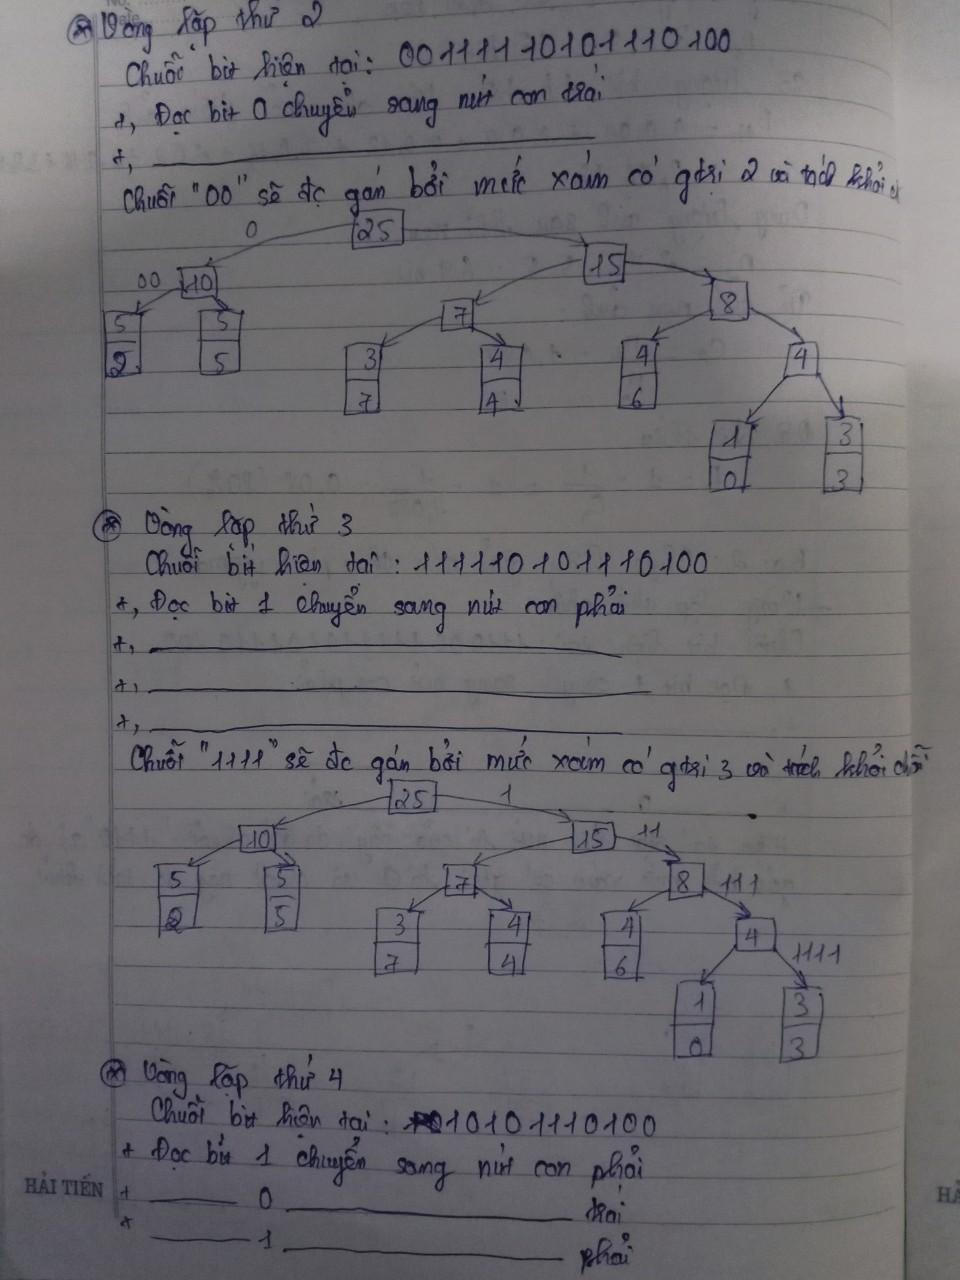 Vòng lặp thứ 2
Chuỗi bit hiện tại: 00111110101110100
+, Đọc bit 0 chuyển sang nút con trái
+,
Chuỗi "00" sẽ đc gán bởi mức xám có gtrị 2 và tách khỏi
0 25
00 10 15
7 8
5 5 3 4 4 4
2 5 7 4 6
1 3
0 3
Vòng lặp thứ 3
Chuỗi bit hiện tại: 111110101110100
+, Đọc bit 1 chuyển sang nút con phải
+,
+,
+,
Chuỗi "1111" sẽ đc gán bởi mức xám có gtrị 3 và tách khỏi chuỗi
25 1
10 15 11
5 5 7 8 111
2 5 3 4 4 4
7 4 6 1111
1 3
0 3
Vòng lặp thứ 4
Chuỗi bit hiện tại: 10101110100
+ Đọc bit 1 chuyển sang nút con phải
HẢI TIẾN
+ 0 trái
+ 1 phải